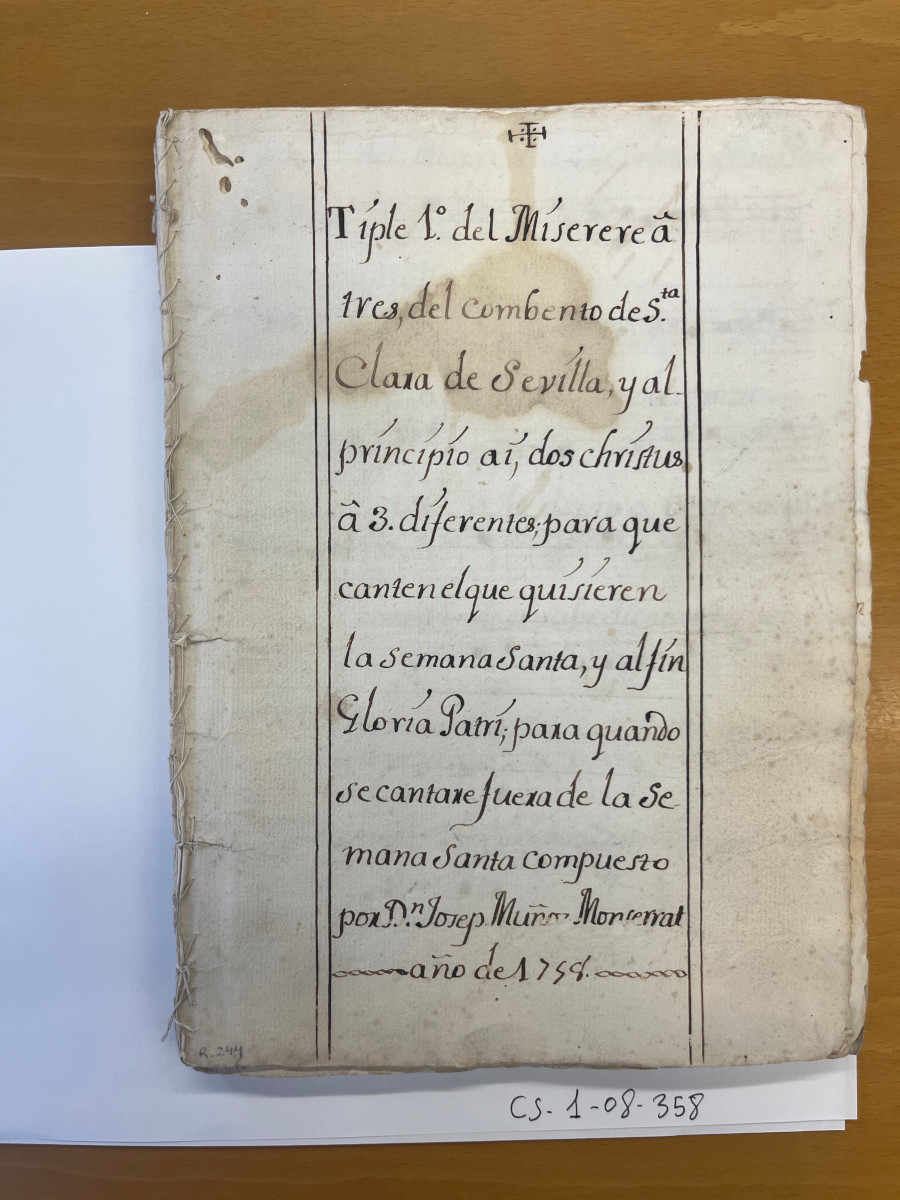 Tiple 1º. del Miserere â
tres, del combento de S.ta
Clara de Sevilla, y al
principio ai, dos christus
â 3. diferentes; para que
canten el que quisieren
la semana Santa, y al fin
Gloria Patri; para quando
se cantare fuera de la Se
mana Santa compuesto
por D.n Josep Muñoz Monserrat
año de 1758.
R. 244
CS- 1-08-358